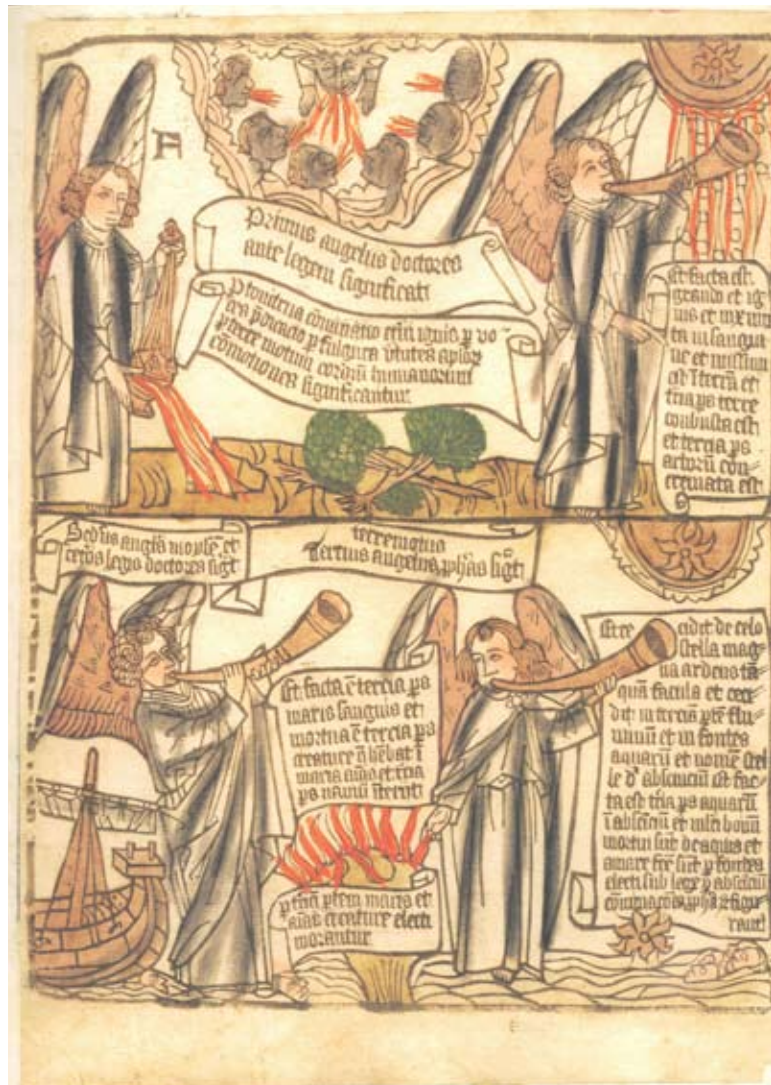 A
Primus angelus doctores
ante legem significat
P tonitrua cōminatio et̄ni ignis p vo-
ces p̄dicacō p fulgura v̄tutes aplōr
p terre motum cordiū humanorum
cōmotiones significantur
Et facta est
grando et ig-
nis et mixta
in sangui-
ne et missum
est ī terrā et
tercia ps terre
conbusta est
et tercia ps
con-
cremata est
Scd̄us angl̄s moysē et
ceteros legis doctores sigt
terremotus
Tercius angelus p̄has sigt
Et facta ē tercia ps
maris sanguis et
mortua ē tercia ps
creature q̄ h̄ebat ī
mari et tercia
ps naviū īteriit
p terciā ptem maris et
creature electi
morantur
Et ce cidit de celo
stella mag-
na ardens tā-
quā facula et ceci-
dit in terciā ptē flu-
minum et in fontes
aquarū et nomē stel-
le d̄ absinciū et fac-
ta est tercia ps aquarū
ī absinciū et mlti hoium
mortui sūt de aquis et
amare sūt p fontes
electi sub lege p absinciū
figu-
rant